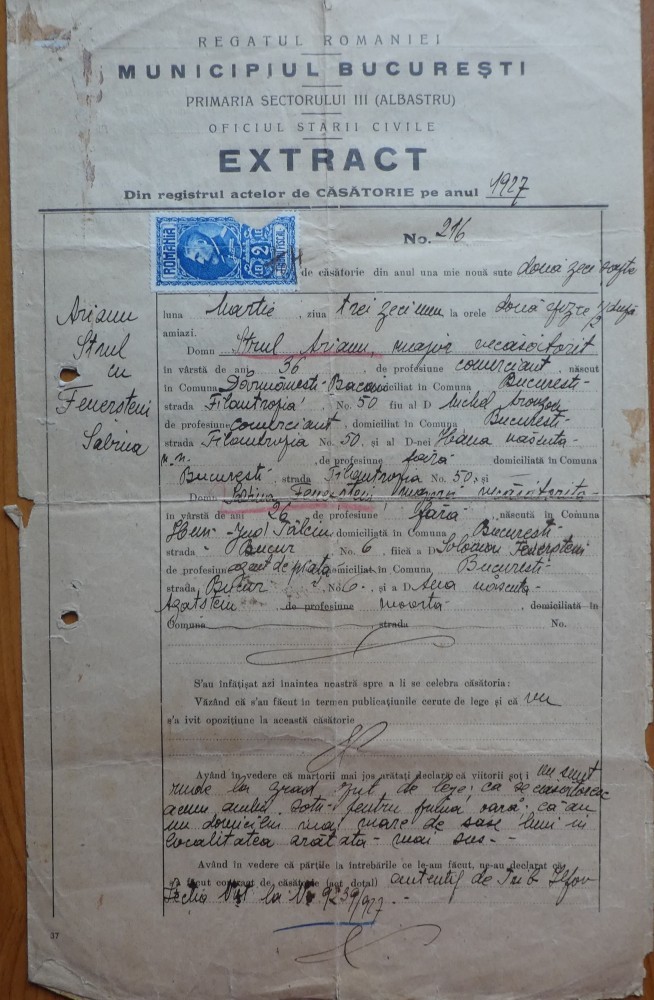 REGATUL ROMANIEI
MUNICIPIUL BUCUREȘTI
PRIMARIA SECTORULUI III (ALBASTRU)
OFICIUL STĂRII CIVILE
EXTRACT
Din registrul actelor de CĂSĂTORIE pe anul 1927
No. 216
ROMANIA
2 LEI
de căsătorie din anul una mie nouă sute două zeci șapte
luna Martie, ziua trei zeci unu la orele două
amiazi.
Domn Strul Arianu, major necăsătorit
în vârstă de ani 36 de profesiune comerciant, născut
în Comuna Dărmănești-Bacău domiciliat în Comuna București-
strada Filantropia, No. 50 fiu al D
de profesiune comerciant, domiciliat în Comuna București-
strada Filantropia No. 50, și al D-nei născută-
n.n. , de profesiune fără domiciliată în Comuna
București, strada Filantropia No. 50, și
Domn Sabina Feuerstein, majoră necăsătorită-
în vârstă de ani 26 de profesiune fără, născută în Comuna
domiciliată în Comuna București-
strada Bucur, No. 6, fiică a D Solomon Feuerstein
de profesiune agent de piață domiciliat în Comuna București-
strada Bucur No 6-, și a D Ana născută-
de profesiune moartă, domiciliată în
Comuna strada No.
Arianu
Strul
cu
Feuerstein
Sabina
S'au înfățișat azi înaintea noastră spre a li se celebra căsătoria:
Văzând că s'au făcut în termen publicațiunile cerute de lege și că nu
s'a ivit opozițiune la această căsătorie
Având în vedere că martorii mai jos arătați declară că viitorii soți nu sunt
rude la grad de lege; că se căsătoresc
acum, ambii soți pentru prima oară; că au
un domiciliu mai mare de șase luni în
localitatea arătată mai sus.-
Având în vedere că părțile la întrebările ce le-am făcut, ne-au declarat că
s'a făcut contract de căsătorie (act dotal) autentif de Trib Ilfov
Secția la No 9239/927.-
37